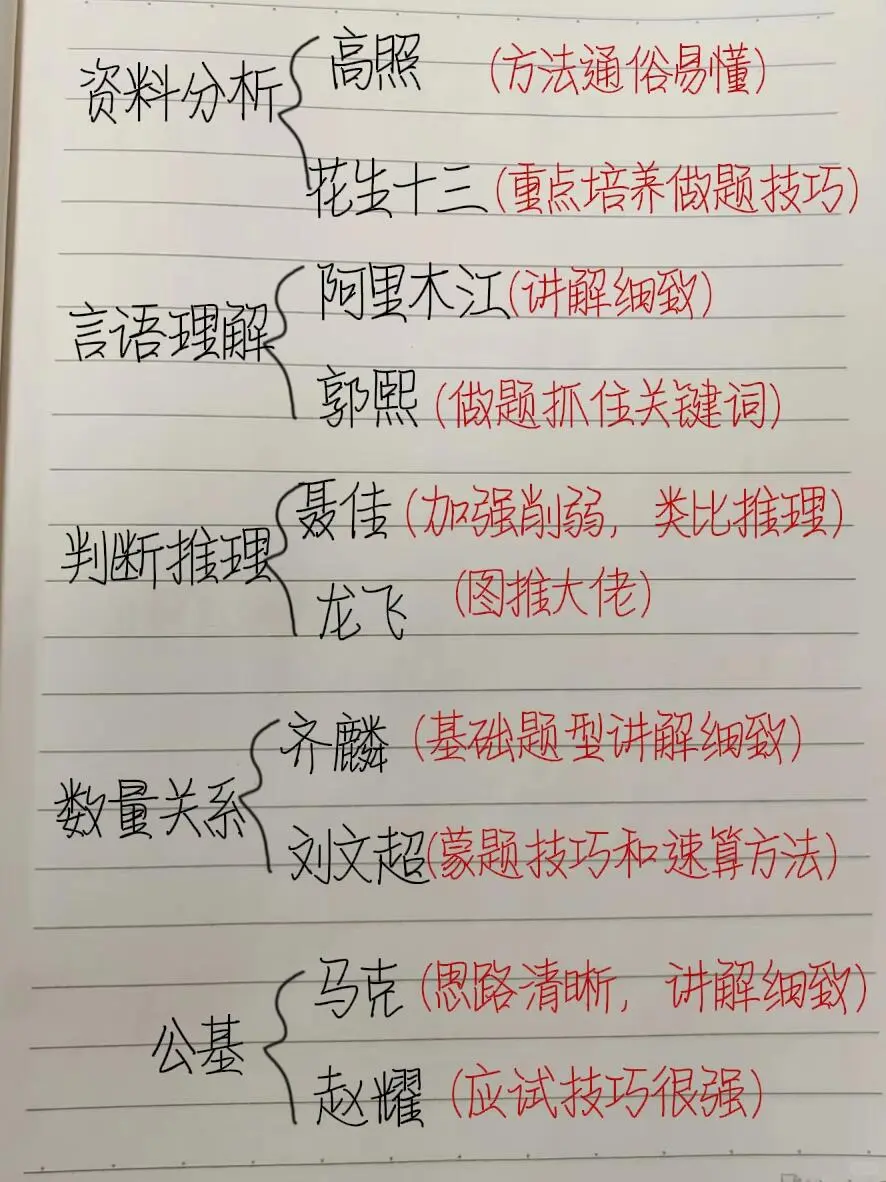 高照 (方法通俗易懂)
资料分析
花生十三 (重点培养做题技巧)
阿里木江 (讲解细致)
言语理解
郭熙 (做题抓住关键词)
聂佳 (加强削弱，类比推理)
判断推理
龙飞 (图推大佬)
齐麟 (基础题型讲解细致)
数量关系
刘文超 (蒙题技巧和速算方法)
马克 (思路清晰，讲解细致)
公基
赵耀 (应试技巧很强)